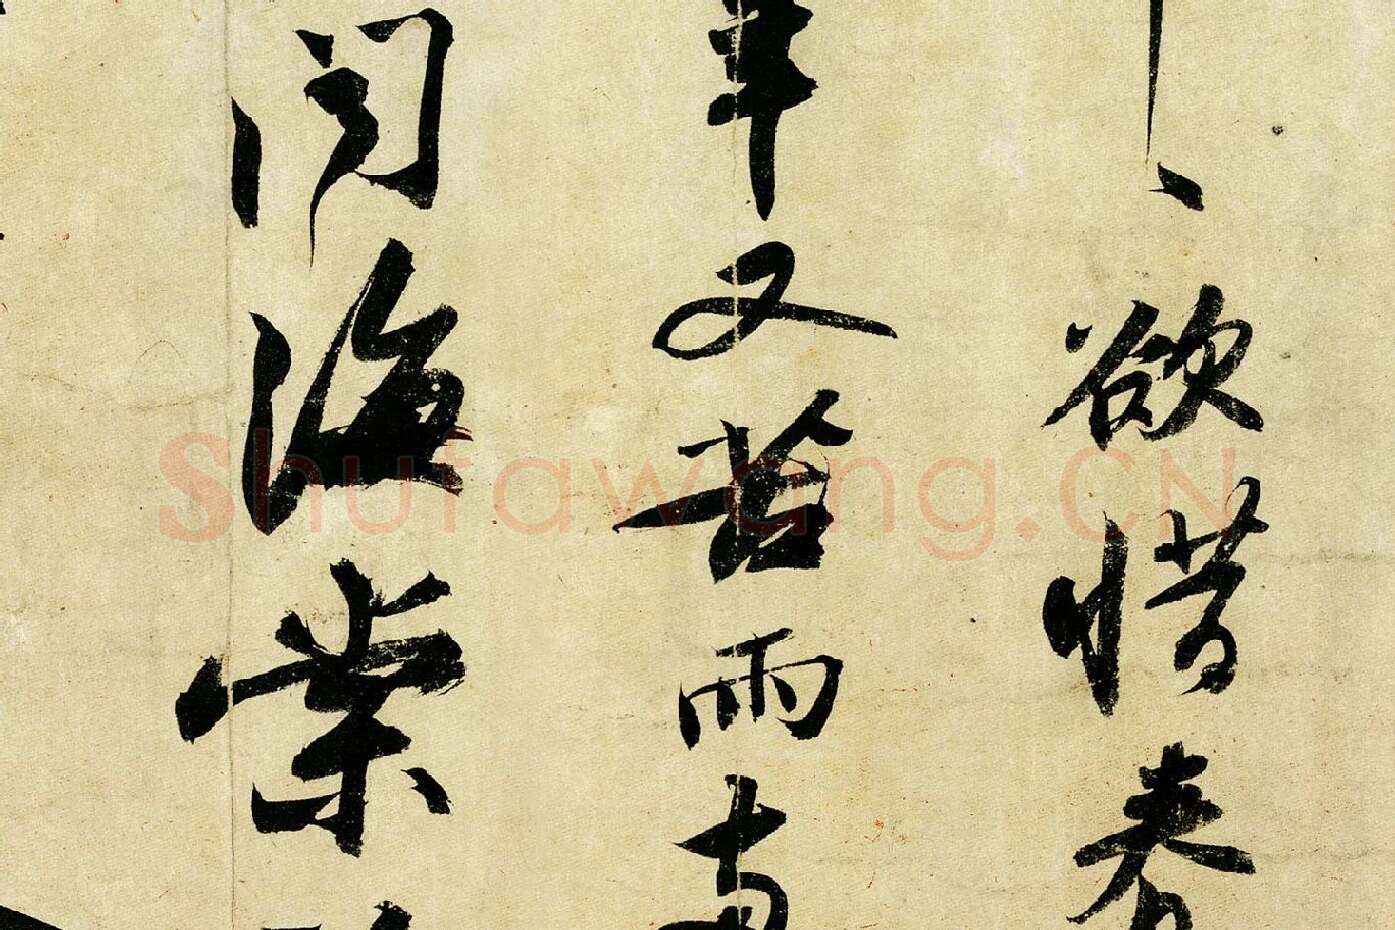 年、欲惜春
年又苦雨兩
闻海棠花
Shufawang.CN